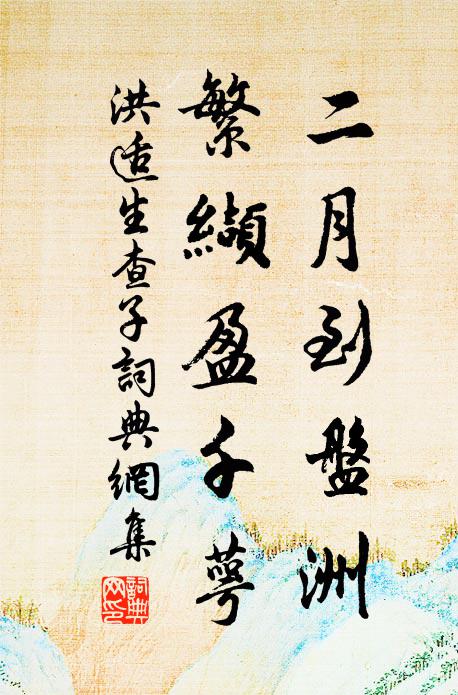 二月到盤洲
繁纈盈千萼
洪适生查子詞典網集